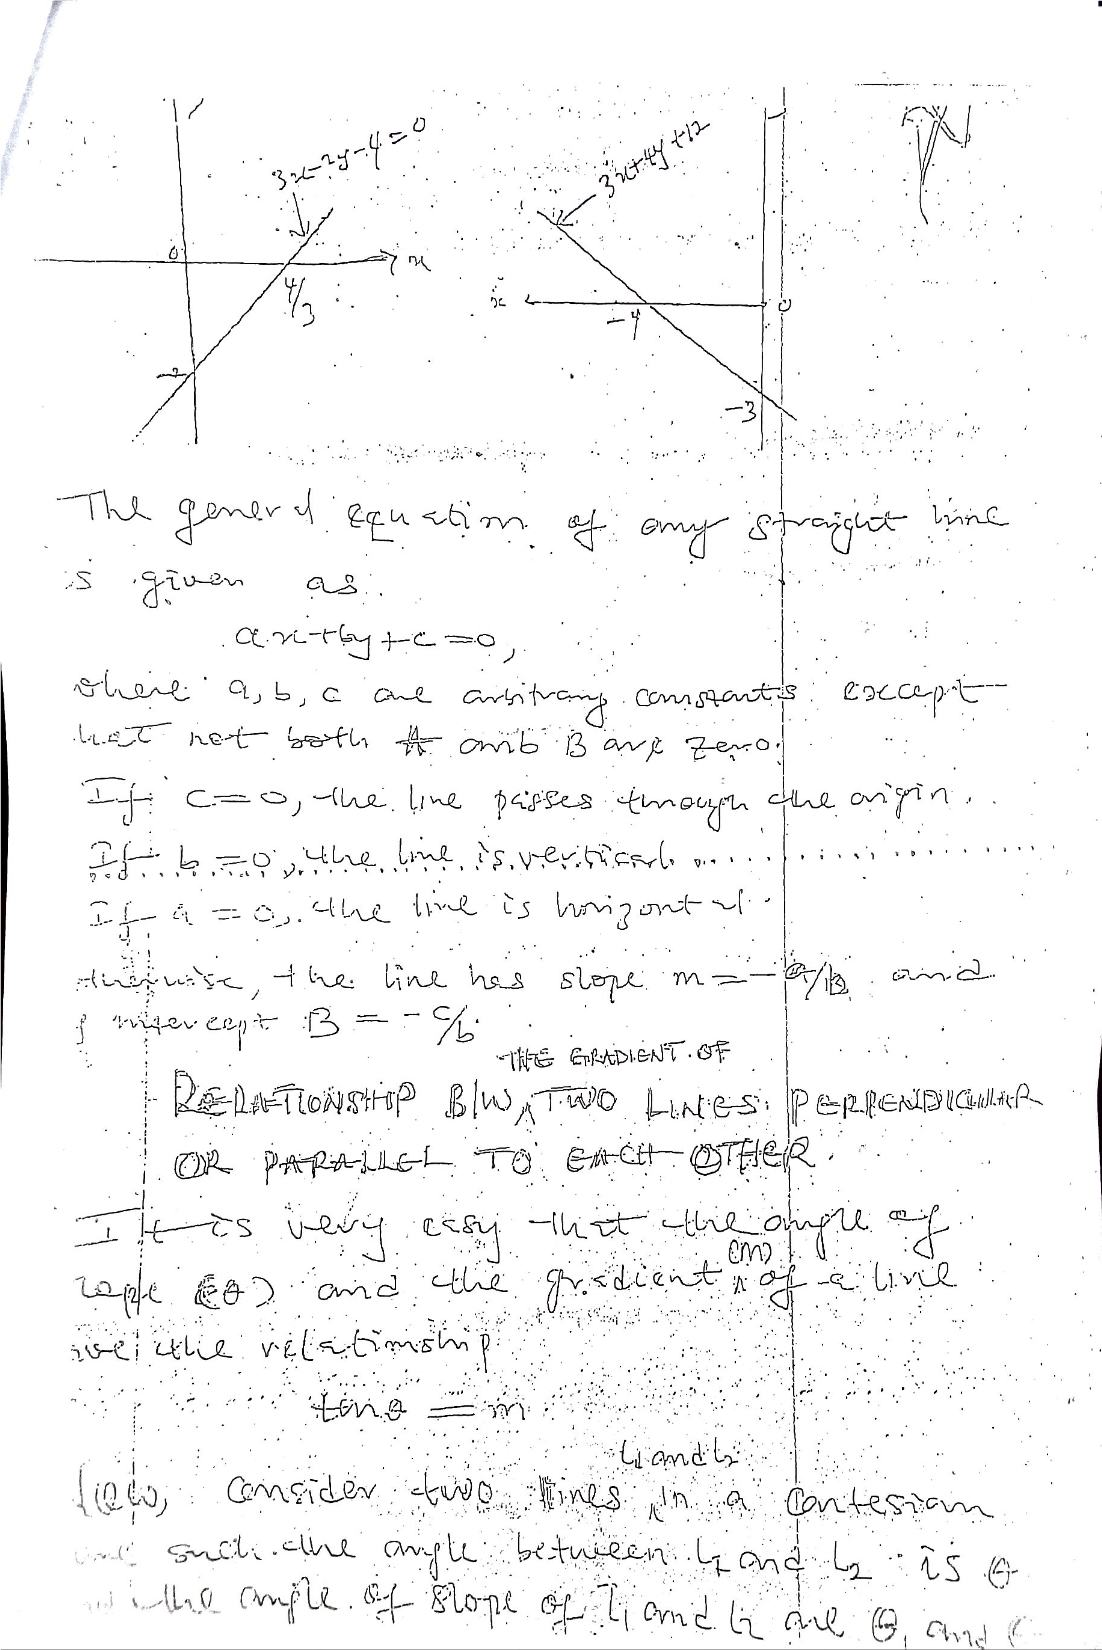 3x-2y-4=0
3x+4y+12
0
x
4/3
-2
x
-4
0
-3
The general equation of any straight line
is given as
ax+by+c=0,
where a, b, c are arbitrary constants except
hat not both A anb B are zero.
If c=0, the line passes through the origin.
If b=0, the line is vertical.
If a=0, the line is horizontal.
therwise, the line has slope m=-a/b and
y intercept B = -c/b.
THE GRADIENT OF
RELATIONSHIP B/W, TWO LINES PERPENDICULAR
OR PARALLEL TO EACH OTHER.
It is very easy that the angle of
(m)
lope (θ) and the gradient of a line
the relationship
tanθ = m
L1 and L2
Now, consider two lines in a Cartesian
such the angle between L1 and L2 is θ
the angle of slope of L1 and L2 are θ1 and